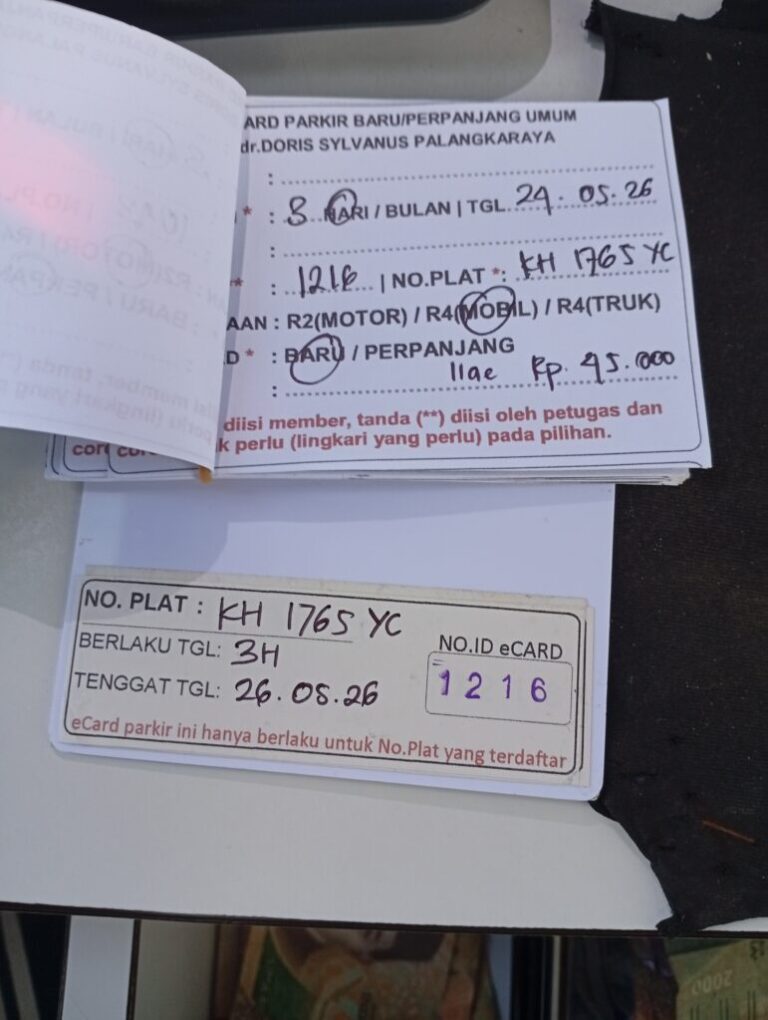 ARD PARKIR BARU/PERPANJANG UMUM
dr.DORIS SYLVANUS PALANGKARAYA
:
* : 3 HARI / BULAN | TGL. 24. 05. 26
:
* : 1216 | NO.PLAT *: KH 1765 YC
AAN : R2(MOTOR) / R4(MOBIL) / R4(TRUK)
D * : BARU / PERPANJANG
: Rp. 45.000
diisi member, tanda (**) diisi oleh petugas dan
k perlu (lingkari yang perlu) pada pilihan.
NO. PLAT : KH 1765 YC
BERLAKU TGL: 3H
NO.ID eCARD
TENGGAT TGL: 26. 05. 26
1216
eCard parkir ini hanya berlaku untuk No.Plat yang terdaftar
2000